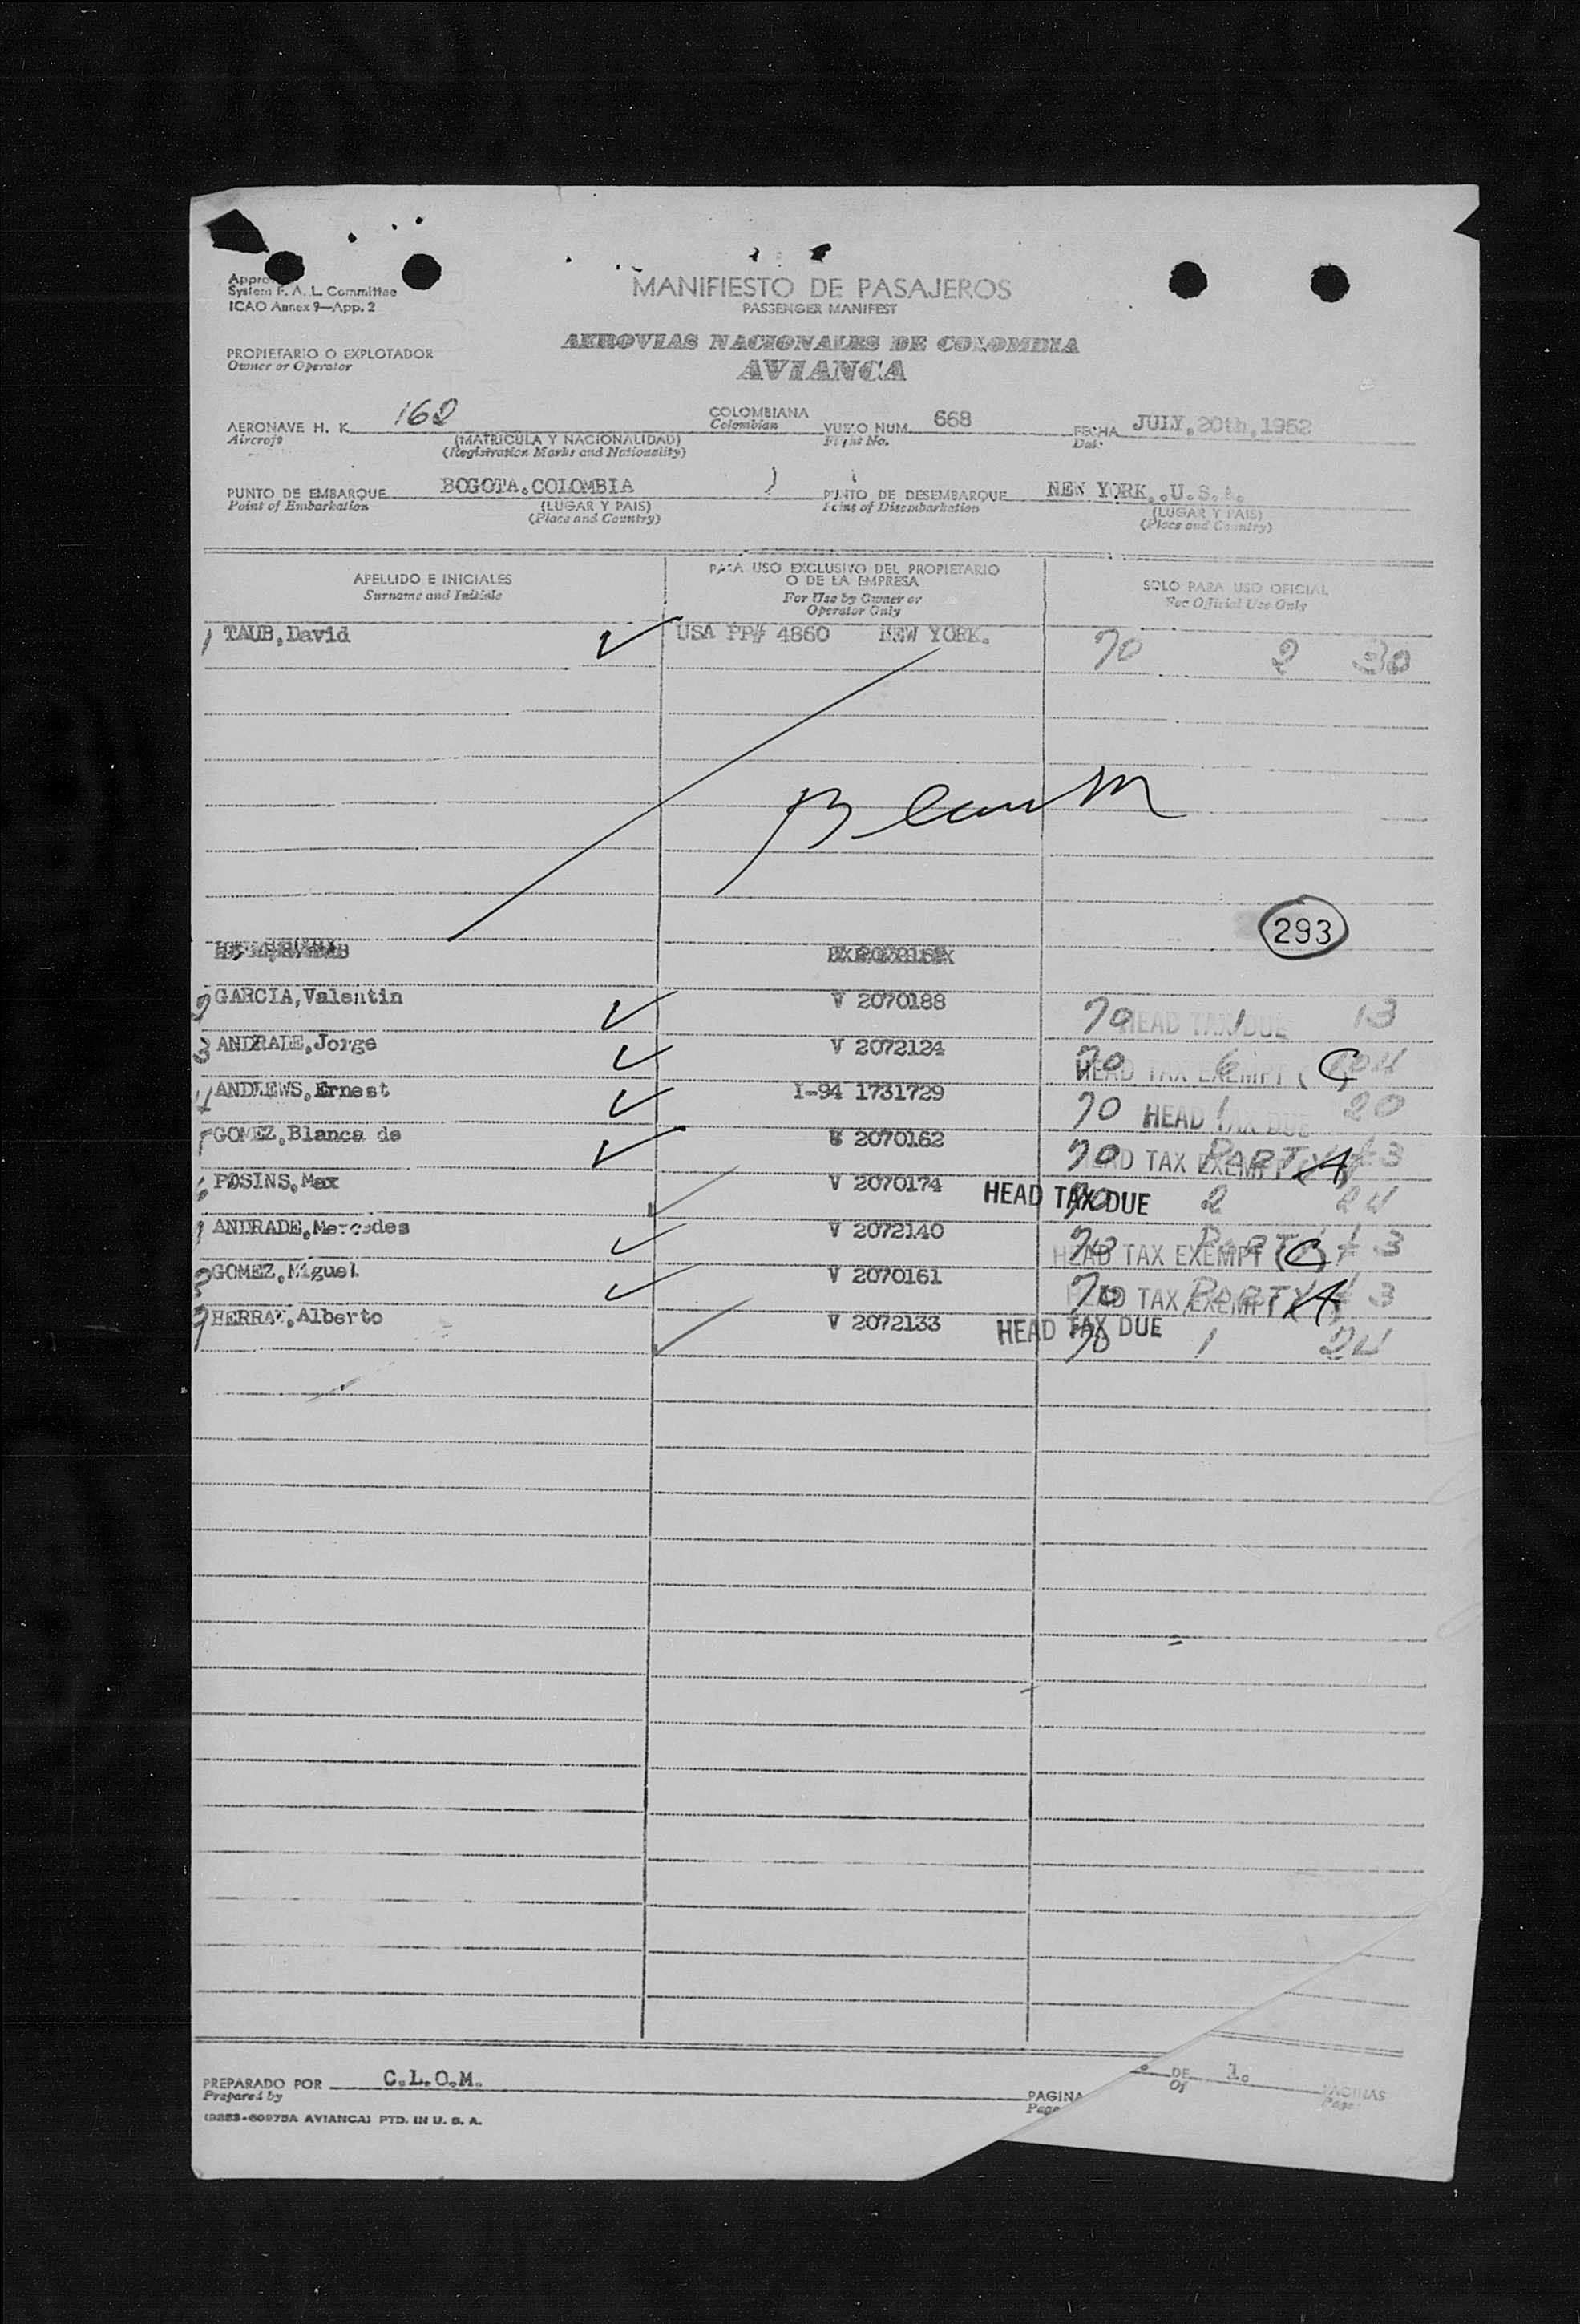 System F. A. L. Committee
ICAO Annex 9—App. 2
MANIFIESTO DE PASAJEROS
PASSENGER MANIFEST
AEROVIAS NACIONALES DE COLOMBIA
AVIANCA
PROPIETARIO O EXPLOTADOR
Owner or Operator
AERONAVE H. K. 162 COLOMBIANA VUELO NUM. 668 FECHA JULY,20th,1952
Aircraft (MATRICULA Y NACIONALIDAD) Colombian Flight No. Date
(Registration Marks and Nationality)
PUNTO DE EMBARQUE BOGOTA.COLOMBIA PUNTO DE DESEMBARQUE NEW YORK,.U.S.A.
Point of Embarkation (LUGAR Y PAIS) Point of Disembarkation (LUGAR Y PAIS)
(Place and Country) (Place and Country)
APELLIDO E INICIALES PARA USO EXCLUSIVO DEL PROPIETARIO O DE LA EMPRESA SOLO PARA USO OFICIAL
Surname and Initials For Use by Owner or Operator Only For Official Use Only
1 TAUB,David USA PP# 4860 NEW YORK. 70 2 30
293
2 GARCIA,Valentin V 2070188 70 HEAD TAX DUE 1 13
3 ANDRADE,Jorge V 2072124 70 HEAD TAX EXEMPT (C)
4 ANDREWS,Ernest I-94 1731729 70 HEAD TAX DUE 1 20
GOMEZ,Blanca de 2070162 70 HEAD TAX EXEMPT (A) PARTY 3
6 POSINS,Max V 2070174 HEAD TAX DUE 70 2 24
ANDRADE,Mercedes V 2072140 70 HEAD TAX EXEMPT (C) PARTY 3
8 GOMEZ,Miguel V 2070161 70 HEAD TAX EXEMPT (A) PARTY 3
9 HERRAN,Alberto V 2072133 HEAD TAX DUE 70 1 24
PREPARADO POR C.L.O.M. PAGINA DE 1. PAGINAS
Prepared by Page Of Pages
AVIANCA) PTD. IN U. S. A.